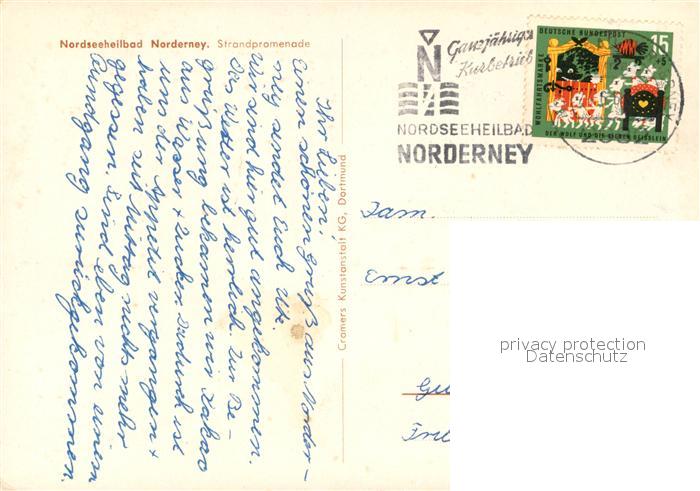 Nordseeheilbad Norderney. Strandpromenade
Ihr Lieben!
Einen schönen Gruß aus Norder-
ney sendet Euch Ute.
Wir sind hier gut angekommen.
Das Wetter ist herrlich. Zur Be-
grüßung bekamen wir Kakao
aus Wasser + Zucker. Dadurch ist
uns der Appetit vergangen +
haben seit Mittag nichts mehr
gegessen. Sind eben von einem
Rundgang zurückgekommen.
Cramers Kunstanstalt KG, Dortmund
N
Ganzjähriger
Kurbetrieb
NORDSEEHEILBAD
NORDERNEY
DEUTSCHE BUNDESPOST
15
+5
WOHLFAHRTSMARKE
DER WOLF UND DIE SIEBEN GEISSLEIN
Fam.
Ernst
privacy protection
Datenschutz